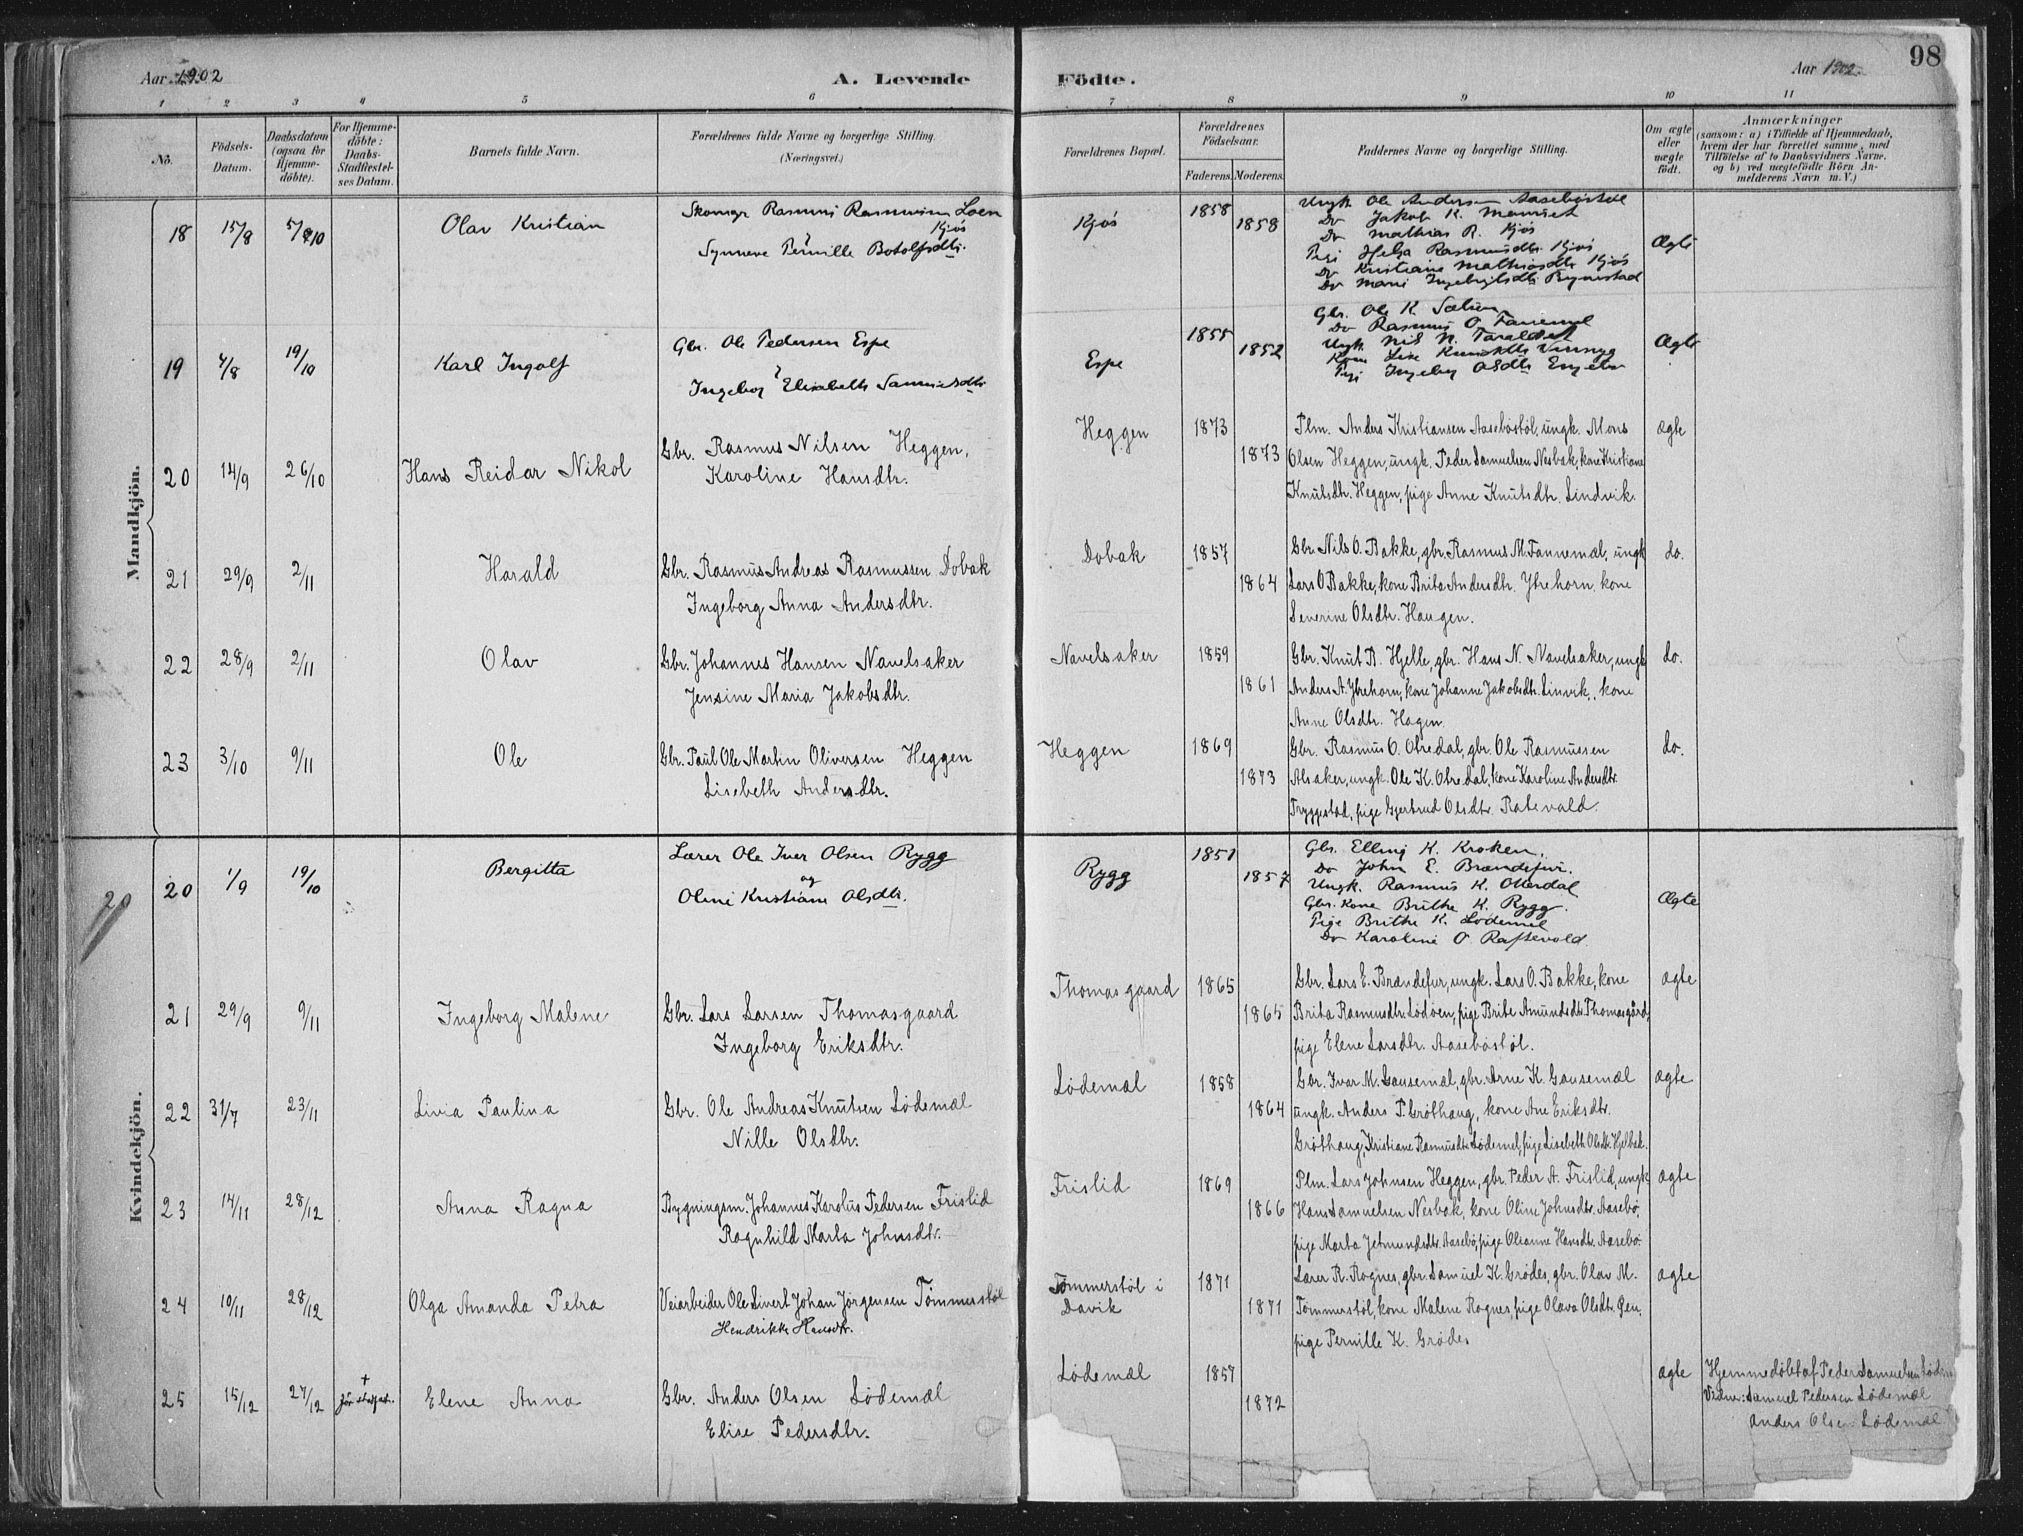 Aar 1902
A. Levende
Födte.
Aar 1902.
98
1 2 3 4 5 6 7 8 9 10 11
No.
Födsels-Datum.
Daabsdatum (ogsaa for Hjemme-döbte).
For Hjemme-döbte: Daabs-Stadfæstel-ses Datum.
Barnets fulde Navn.
Forældrenes fulde Navne og borgerlige Stilling. (Næringsvei.)
Forældrenes Bopæl.
Forældrenes Födselsaar.
Faderens. Moderens.
Faddernes Navne og borgerlige Stilling.
Om ægte eller uægte födt.
Anmærkninger
(saasom: a) i Tilfælde af Hjemmedaab,
hvem der har forrettet samme, med
Tilföielse af to Daabsvidners Navne,
og b) ved uægtefödte Börn An-
melderens Navn m. V.)
Mandkjön.
18 15/8 5/10 Olav Kristian
Skomgr Rasmus Rasmussen Loen
Kjøs
Synneve Pernille Botolfsdtr.
Kjøs 1858 1858
Ungk Ole Andersen Aasebøstøl
Do Jakob K.
Do Mathias R. Kjøs
Pige Helga Rasmusdtr Kjøs
Do Kristiane Mathiasdtr Kjøs
Do Marie Ingebrigtsdtr
Ægte
19 4/8 19/10 Karl Ingolf
Gbr. Ole Pedersen Espe
Ingeborg Elisabeth
Espe 1855 1852
Gbr. Ole K.
Do Rasmus O.
Ungk Nils N.
Kone Lise
Pige Ingeborg
Ægte
20 14/9 26/10 Hans Reidar Nikol
Gbr. Rasmus Nilsen Heggen,
Karoline Hansdtr.
Heggen 1873 1873
Plm. Anders Kristiansen Aasebøstøl, ungk. Mons
Olsen Heggen, ungk. Peder Samuelsen Nesbak, kone Kristiane
Knutsdtr. Heggen, pige Anne Knutsdtr. Lindvik.
ægte
21 29/9 2/11 Harald
Gbr. Rasmus Andreas Rasmussen Dobak
Ingeborg Anna Andersdtr.
Dobak 1857 1864
Gbr. Nils O. Bakke, gbr. Rasmus M. Fannemel, ungk
Lars O. Bakke, kone Brita Andersdtr. Ytrehorn, kone
Severine Olsdtr. Haugen.
do.
22 28/9 2/11 Olav
Gbr. Johannes Hansen Navelsaker
Jensine Maria Jakobsdtr.
Navelsaker 1859 1861
Gbr. Knut B. Hjelle, gbr. Hans N. Navelsaker, ungk
Anders A. Ytrehorn, kone Johanne Jakobsdtr. Linvik, kone
Anne Olsdtr. Hagen.
do.
23 3/10 9/11 Ole
Gbr. Paul Ole Martin Oliversen Heggen
Lisebeth Andersdtr.
Heggen 1869 1873
Gbr. Rasmus O. Otredal, gbr. Ole Rasmussen
Alsaker, ungk. Ole K. Otredal, kone Karoline Andersdtr.
Tryggestad, pige Gjertrud Olsdtr. Ratevold.
do.
Kvindekjön.
20
20 1/9 19/10 Bergitta
Lærer Ole Iver Olsen Rygg
og
Oline Kristiane Olsdtr.
Rygg 1851 1857
Gbr. Elling K. Kroken,
Do John E. Brændefur.
Ungk. Rasmus K. Otterdal
Gbr. Kone Brithe K. Rygg.
Pige Brithe K. Lødemel
Do Karoline O Raftevold.
Ægte
21 29/9 9/11 Ingeborg Malene
Gbr. Lars Larsen Thomasgaard
Ingeborg Eriksdtr.
Thomasgaard 1865 1865
Gbr. Lars E. Brændefur, ungk. Lars O. Bakke, kone
Brita Rasmusdtr. Lødøen, pige Brite Amundsdtr Thomasgård,
pige Elene Larsdtr. Aasebøstøl.
ægte
22 31/7 23/11 Livia Paulina
Gbr. Ole Andreas Knutsen Lødemæl
Nille Olsdtr.
Lødemæl 1858 1864
Gbr. Ivar M. Gausemæl, gbr. Arne K. Gausemæl
ungk. Anders P. Grøthaug, kone Ane Eriksdtr.
Grøthaug, Kristiane Rasmusdtr Lødemel, pige Lisebeth Olsdtr.
ægte
23 14/11 28/12 Anna Ragna
Bygningsm. Johannes Karolus Pedersen Frislid
Ragnhild Marta Johnsdtr.
Frislid 1869 1866
Plm. Lars Johnsen Heggen, gbr. Peder A. Frislid, ungk
Hans Samuelsen Nesbak, kone Oline Johnsdtr. Aasebø,
pige Marta Jetmundsdtr. Aasebø, pige Olianne Hansdtr. Aasebø.
ægte
24 10/11 28/12 Olga Amanda Petra
Veiarbeider Ole Sivert Johan Jörgensen Tömmerstøl
Hendrikke Hansdtr.
Tømmerstøl i
Davik
1871 1871
Lærer R. Rognes, gbr. Samuel K. Grødes, gbr. Olav M.
Tømmerstøl, kone Malene Rognes, pige Olava Olsdtr.
pige Pernille K. Grødes
ægte
25 15/12 27/12 + Elene Anna
Gbr. Anders Olsen Lødemæl
Elise Pedersdtr.
Lødemæl 1857 1872
ægte
Hjemmedøbt af Peder Samuelsen
Vidner: Samuel Pedersen Lødemæl
Anders Olsen Lødemæl